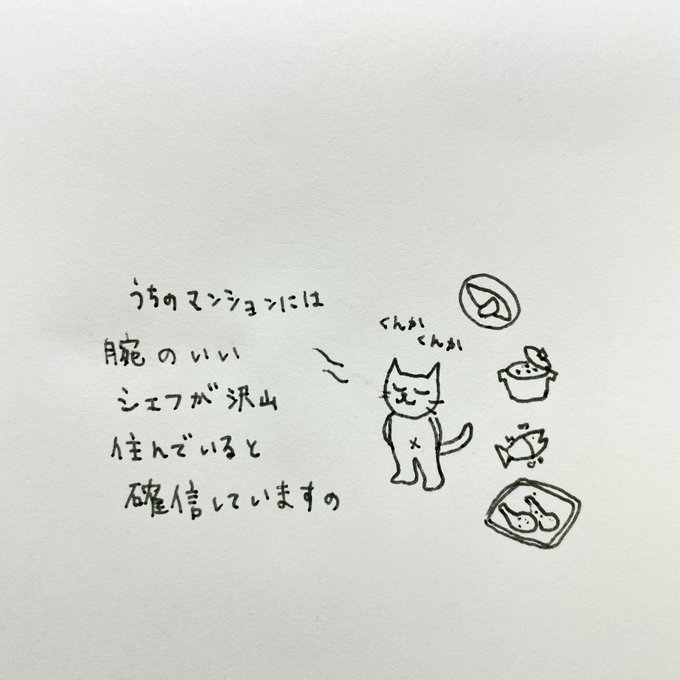 うちのマンションには
腕のいい
シェフが沢山
住んでいると
確信していますの
くんか
くんか